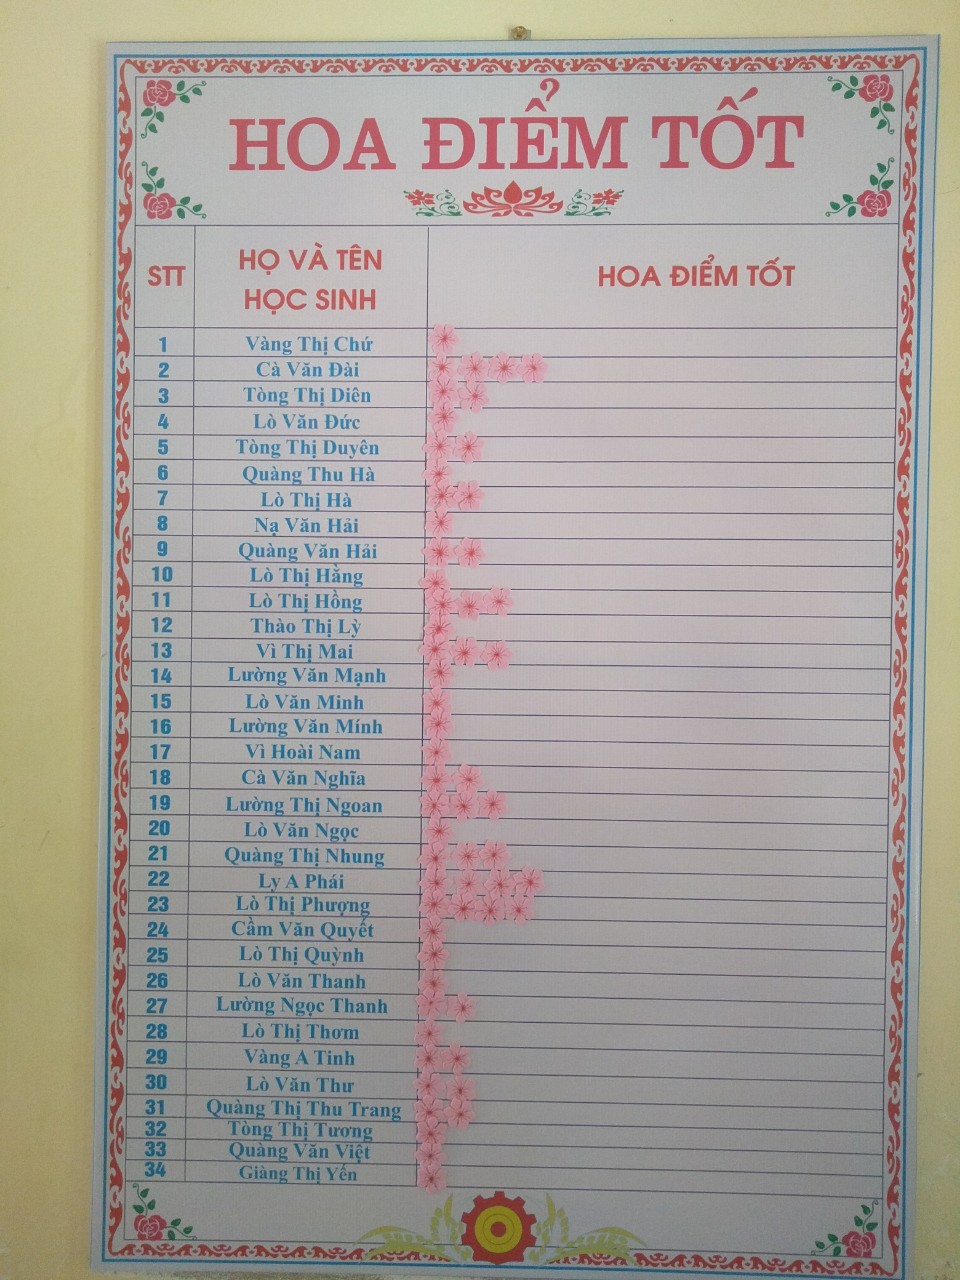 HOA ĐIỂM TỐT
STT
HỌ VÀ TÊN
HỌC SINH
HOA ĐIỂM TỐT
1 Vàng Thị Chứ
2 Cà Văn Đài
3 Tòng Thị Diên
4 Lò Văn Đức
5 Tòng Thị Duyên
6 Quàng Thu Hà
7 Lò Thị Hà
8 Nạ Văn Hải
9 Quàng Văn Hải
10 Lò Thị Hằng
11 Lò Thị Hồng
12 Thào Thị Lỳ
13 Vì Thị Mai
14 Lường Văn Mạnh
15 Lò Văn Minh
16 Lường Văn Mính
17 Vì Hoài Nam
18 Cà Văn Nghĩa
19 Lường Thị Ngoan
20 Lò Văn Ngọc
21 Quàng Thị Nhung
22 Ly A Phái
23 Lò Thị Phượng
24 Cầm Văn Quyết
25 Lò Thị Quỳnh
26 Lò Văn Thanh
27 Lường Ngọc Thanh
28 Lò Thị Thơm
29 Vàng A Tinh
30 Lò Văn Thư
31 Quàng Thị Thu Trang
32 Tòng Thị Tương
33 Quàng Văn Việt
34 Giàng Thị Yến